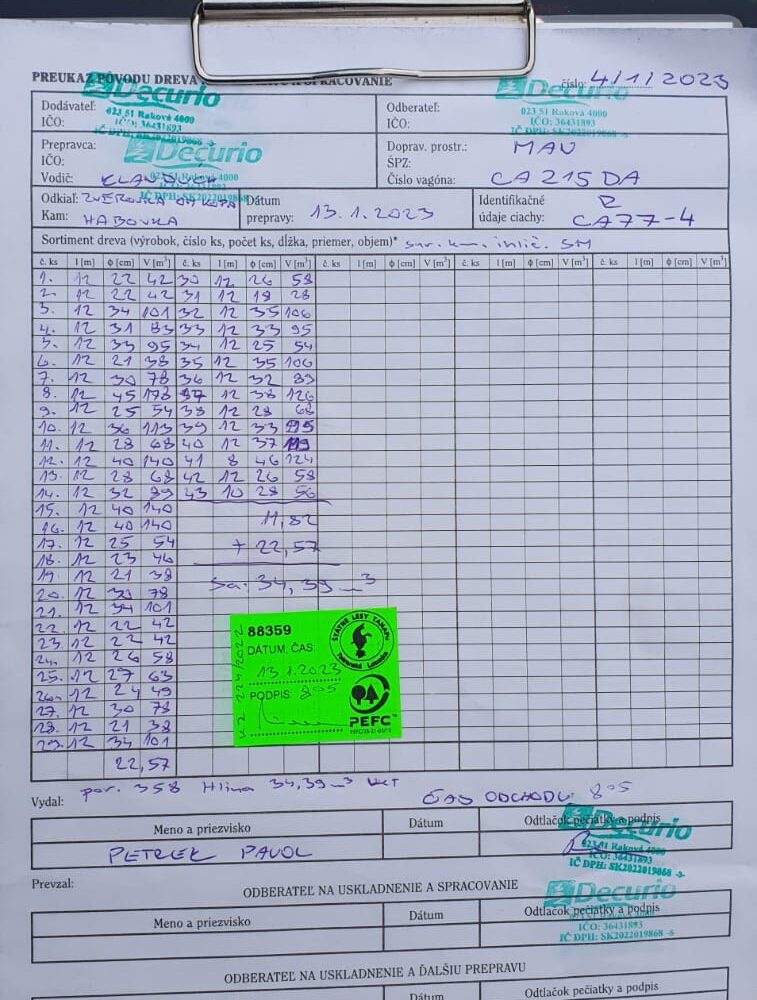 PREUKAZ PÔVODU DREVA
SPRACOVANIE
číslo: 4/1/2023
Decurio
023 51 Raková 4000
IČO: 36431893
IČ DPH: SK2022019868 -3-
Decurio
023 51 Raková 4000
IČO: 36431893
IČ DPH: SK2022019868
Dodávateľ:
IČO:
Odberateľ:
IČO:
Prepravca:
IČO:
Vodič:
Decurio
4000
IČ DPH: SK20220198
Doprav. prostr.: MAN
ŠPZ:
Číslo vagóna: CA 215 DA
Odkiaľ:
Kam: HABOVKA
Dátum
prepravy: 13.1.2023
Identifikačné
údaje ciachy: CA77-4
Sortiment dreva (výrobok, číslo ks, počet ks, dĺžka, priemer, objem)* SM
č. ks l [m] ϕ [cm] V [m³] č. ks l [m] ϕ [cm] V [m³] č. ks l [m] ϕ [cm] V [m³] č. ks l [m] ϕ [cm] V [m³] č. ks l [m] ϕ [cm] V [m³]
1. 12 22 42 30 12 26 58
2. 12 22 42 31 12 18 28
3. 12 34 101 32 12 35 106
4. 12 31 83 33 12 33 95
5. 12 33 95 34 12 25 54
6. 12 21 38 35 12 35 106
7. 12 30 78 36 12 32 89
8. 12 45 178 37 12 38 126
9. 12 25 54 38 12 28 68
10. 12 36 113 39 12 33 95
11. 12 28 68 40 12 37 119
12. 12 40 140 41 8 46 124
13. 12 28 68 42 12 26 58
14. 12 32 89 43 10 28 56
15. 12 40 140
16. 12 40 140 11,82
17. 12 25 54 + 22,57
18. 12 23 46
19. 12 21 38 34,39 m³
20. 12 30 78
21. 12 34 101
22. 12 22 42
23. 12 22 42
24. 12 26 58
25. 12 27 63
26. 12 24 49
27. 12 30 78
28. 12 21 38
29. 12 34 101
22,57
88359
DÁTUM, ČAS:
13.1.2023
PODPIS: 805
ŠTÁTNE LESY TANAPU
Tatranská Lomnica
PEFC
Vydal: por. 358 Hlina 34,39 m³
ČAS ODCHODU 805
Meno a priezvisko
Dátum
Odtlačok pečiatky a podpis
PETREK PAVOL
Decurio
023 51 Raková 4000
IČO: 36431893
IČ DPH: SK2022019868 -3-
Prevzal:
ODBERATEĽ NA USKLADNENIE A SPRACOVANIE
Meno a priezvisko
Dátum
Odtlačok pečiatky a podpis
Decurio
IČO: 36431893
IČ DPH: SK2022019868
ODBERATEĽ NA USKLADNENIE A ĎALŠIU PREPRAVU
Dátum
Odtlačok pečiatky a podpis